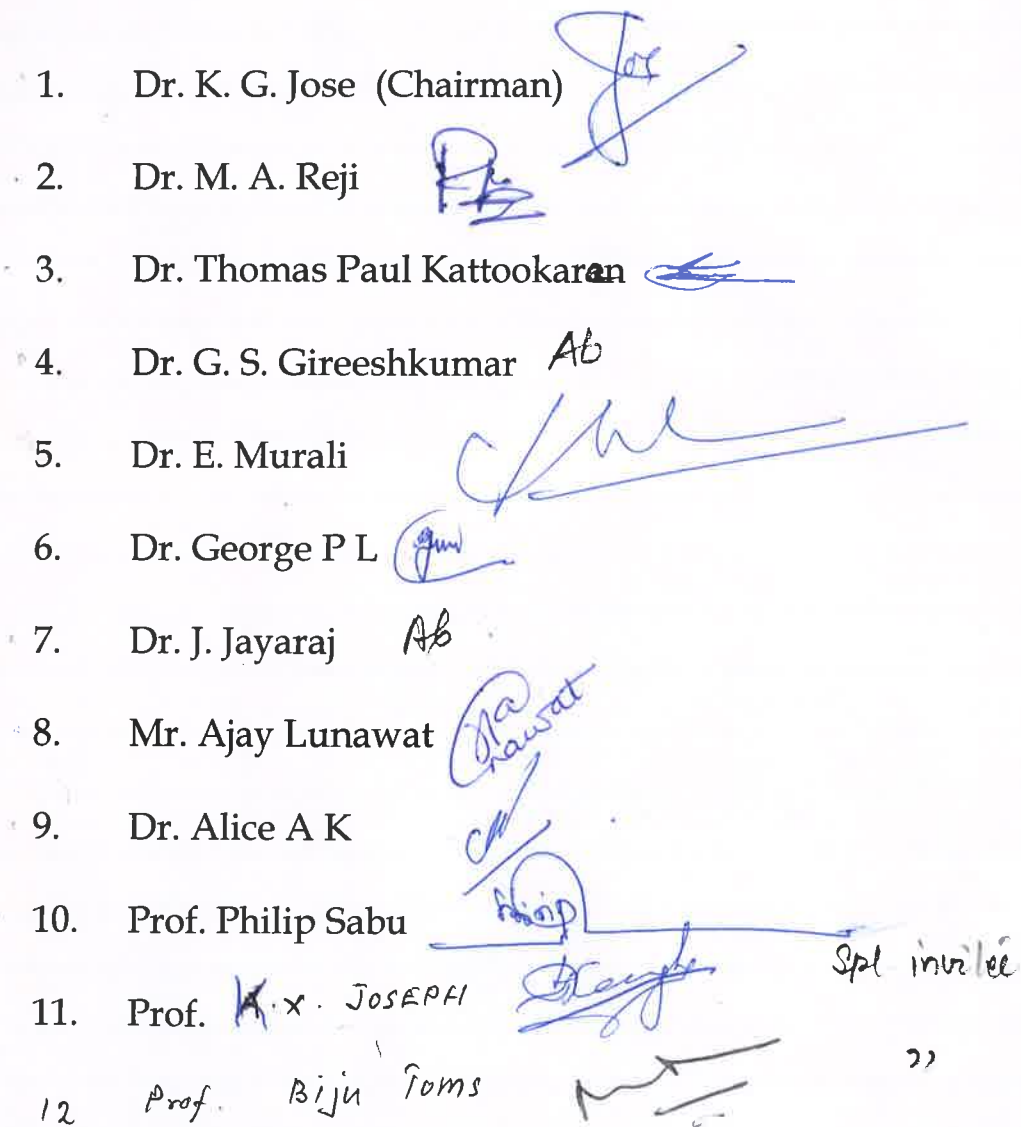 1. Dr. K. G. Jose (Chairman) Jose
2. Dr. M. A. Reji
3. Dr. Thomas Paul Kattookaran
4. Dr. G. S. Gireeshkumar Ab
5. Dr. E. Murali
6. Dr. George P L
7. Dr. J. Jayaraj Ab
8. Mr. Ajay Lunawat
9. Dr. Alice A K
10. Prof. Philip Sabu
Spl invitee
11. Prof. K. X. JOSEPH
12 Prof. Biju Toms ”